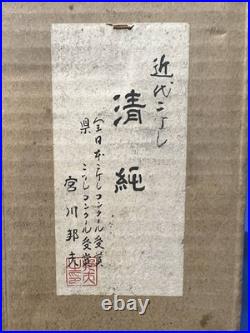 近代こけし
清純
全日本こけしコンクール受賞
県こけしコンクール受賞
宮川邦夫
© taikodou.com